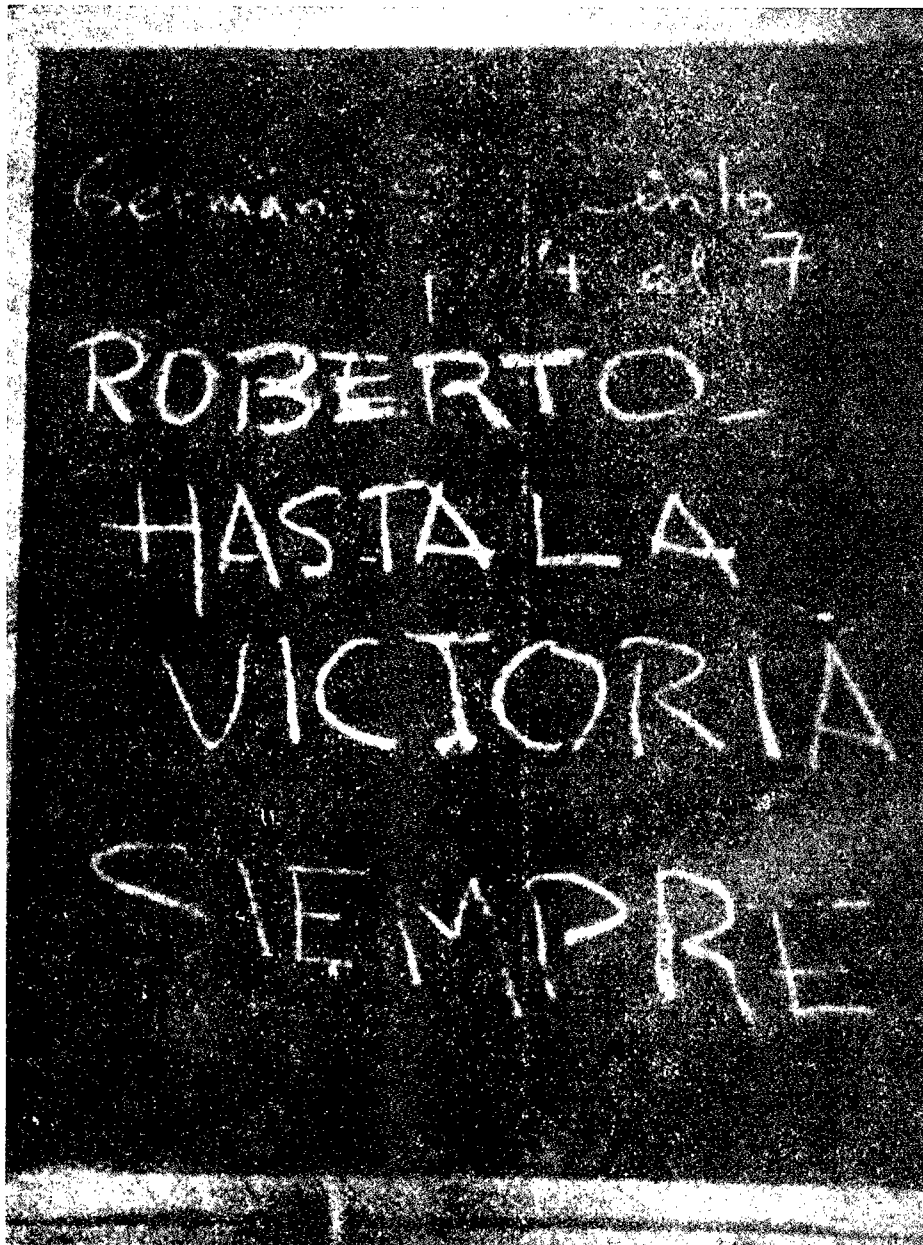 German
4 al 7
ROBERTO_
HASTA LA
VICTORIA
SIEMPRE